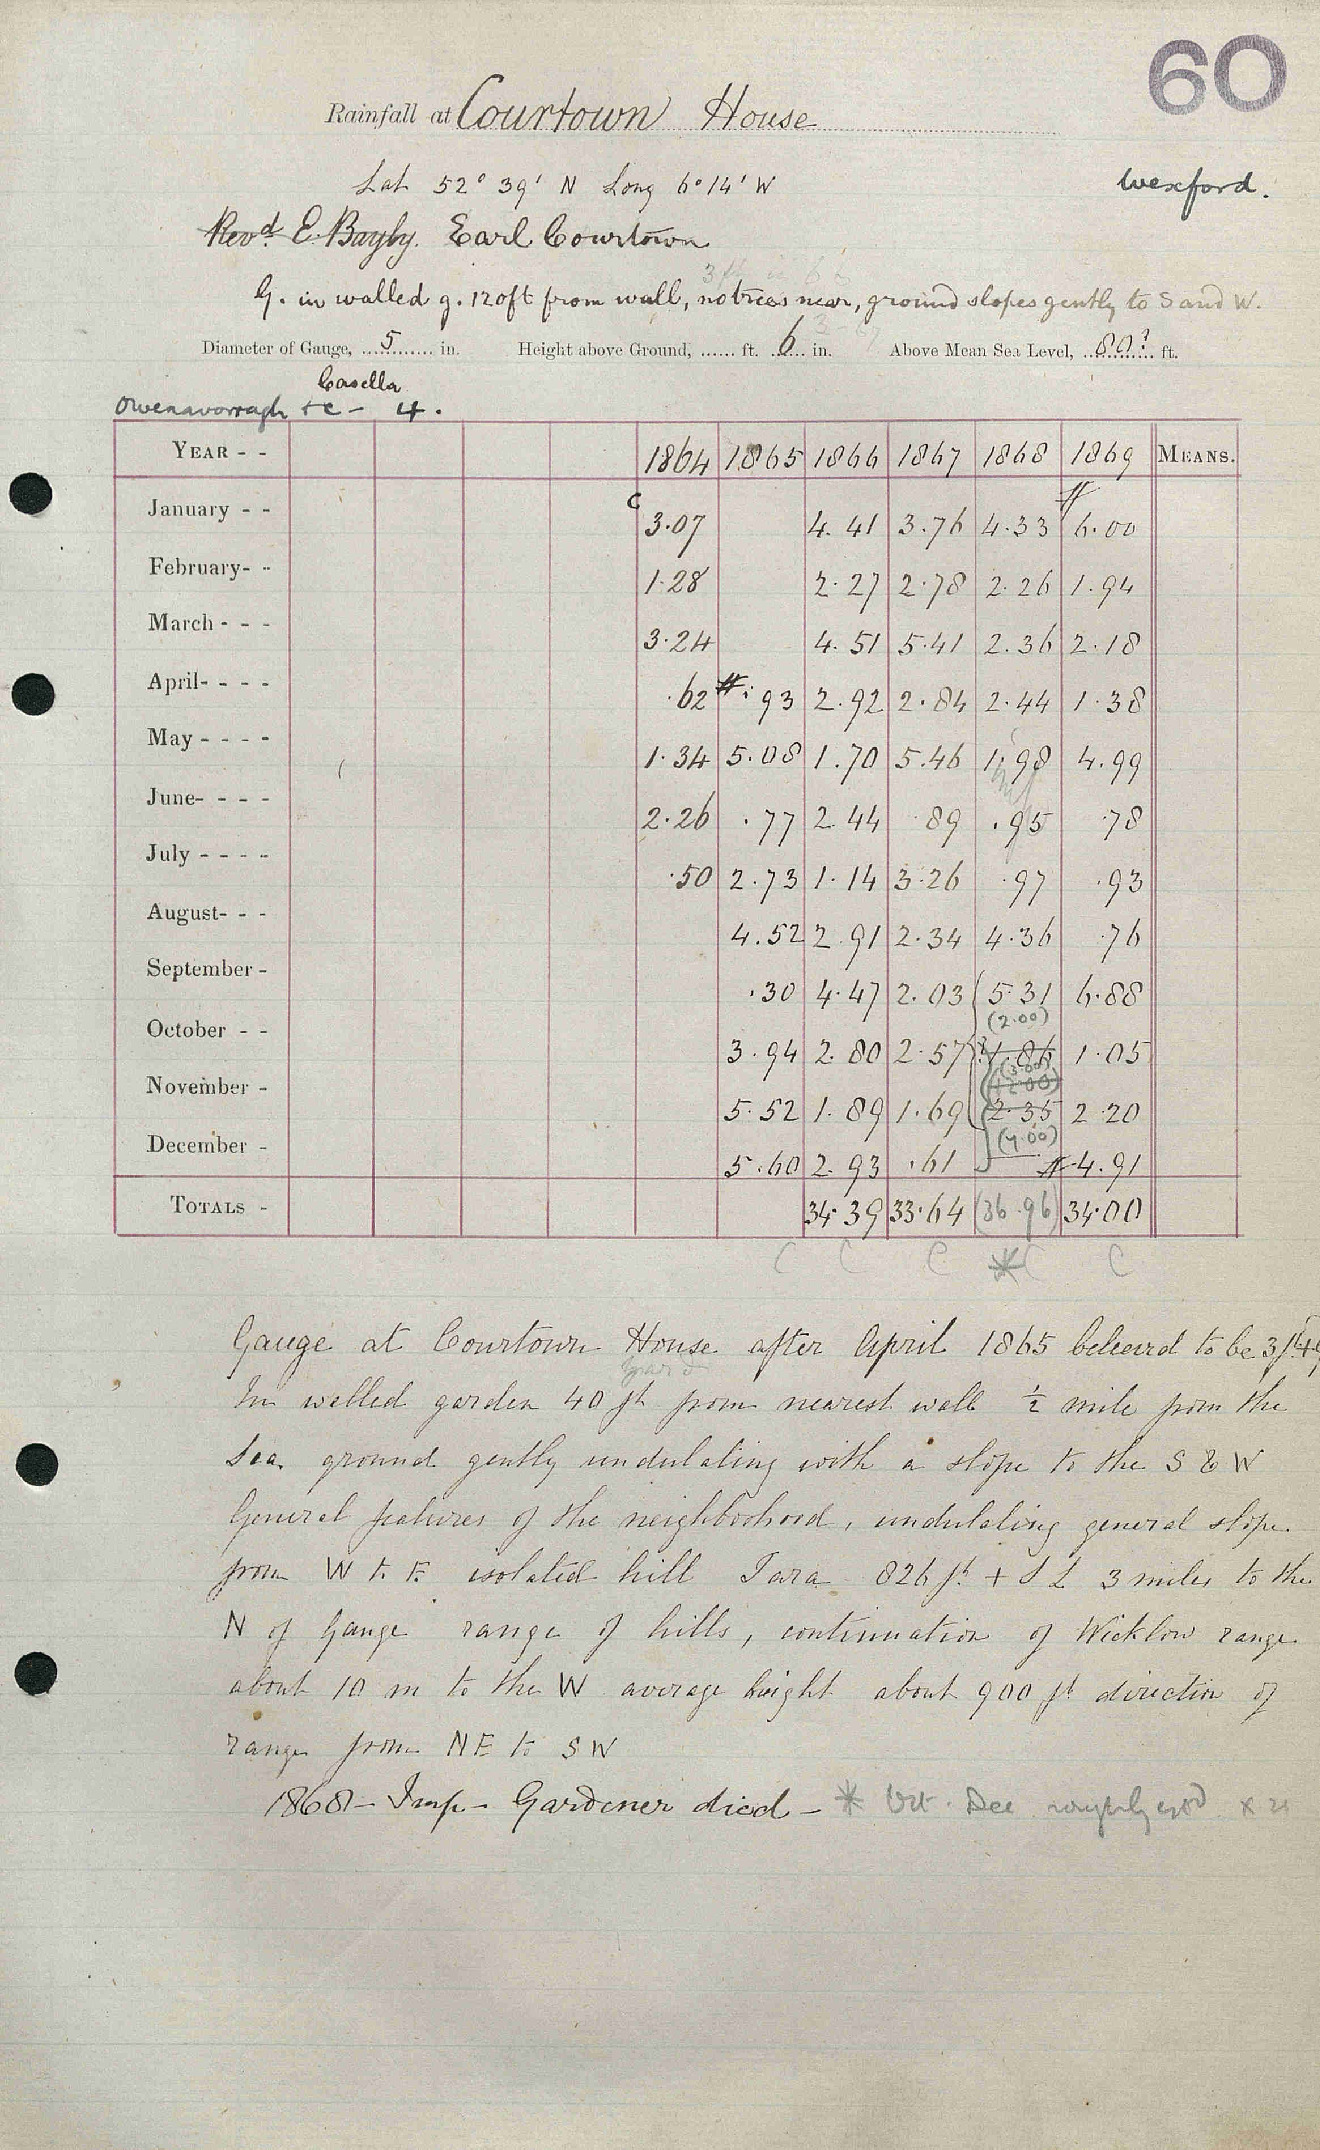 60
Rainfall at Courtown House
Lat 52° 39' N Long 6° 14' W
Wexford.
Revd. E. Bayly. Earl Courtown
G. in walled g. 120ft from wall, no trees near, ground slopes gently to S and W.
Diameter of Gauge, 5 in. Height above Ground, ...... ft. 6 in. Above Mean Sea Level, 80? ft.
Casella
Owenavorragh &c - 4.
YEAR - - 1864 1865 1866 1867 1868 1869 MEANS.
January - - 3.07 4.41 3.76 4.33 6.00
February- - 1.28 2.27 2.78 2.26 1.94
March - - - 3.24 4.51 5.41 2.36 2.18
April- - - - .62 .93 2.92 2.84 2.44 1.38
May - - - - 1.34 5.08 1.70 5.46 1.98 4.99
June- - - - 2.26 .77 2.44 .89 .95 .78
July - - - - .50 2.73 1.14 3.26 .97 .93
August- - - 4.52 2.91 2.34 4.36 .76
September - .30 4.47 2.03 5.31 6.88
(2.00)
October - - 3.94 2.80 2.57 1.86 1.05
(3.00)
(2.00)
November - 5.52 1.89 1.69 2.35 2.20
(4.00)
December - 5.60 2.93 .61 4.91
TOTALS - 34.39 33.64 (36.96) 34.00
C C C * C C
Gauge at Courtown House after April 1865 believed to be 3ft
In walled garden 40 ft from nearest wall ½ mile from the
Sea. ground gently undulating with a slope to the S & W
General features of the neighborhood, undulating general slope
from W to E isolated hill Tara 826 ft + S L 3 miles to the
N of Gauge range of hills, continuation of Wicklow range
about 10 m to the W average height about 900 ft direction of
range from NE to SW
1868 - Imp - Gardener died - * Oct - Dec roughly